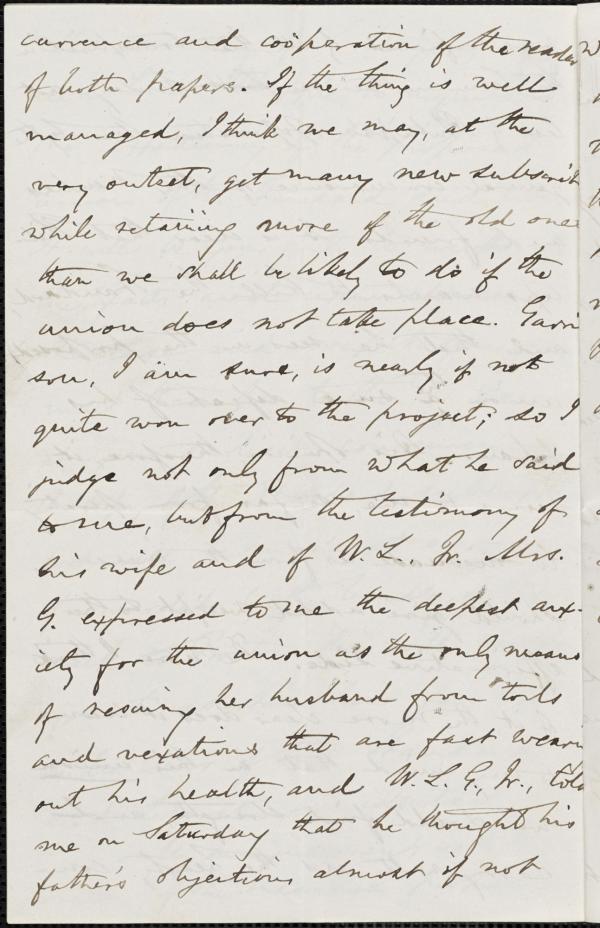 currence and coöperation of the reader
of both papers. If the thing is well
managed, I think we may, at the
very outset, get many new subscrib
while retaining more of the old ones
than we shall be likely to do if the
union does not take place. Garri
son, I am sure, is nearly if not
quite won over to the project; so I
judge not only from what he said
to me, but from the testimony of
his wife and of W. L. Jr. Mrs.
G. expressed to me the deepest anx-
iety for the union as the only means
of rescuing her husband from toils
and vexations that are fast weari
out his health, and W. L. G., Jr., told
me on Saturday that he thought his
father's objections almost if not